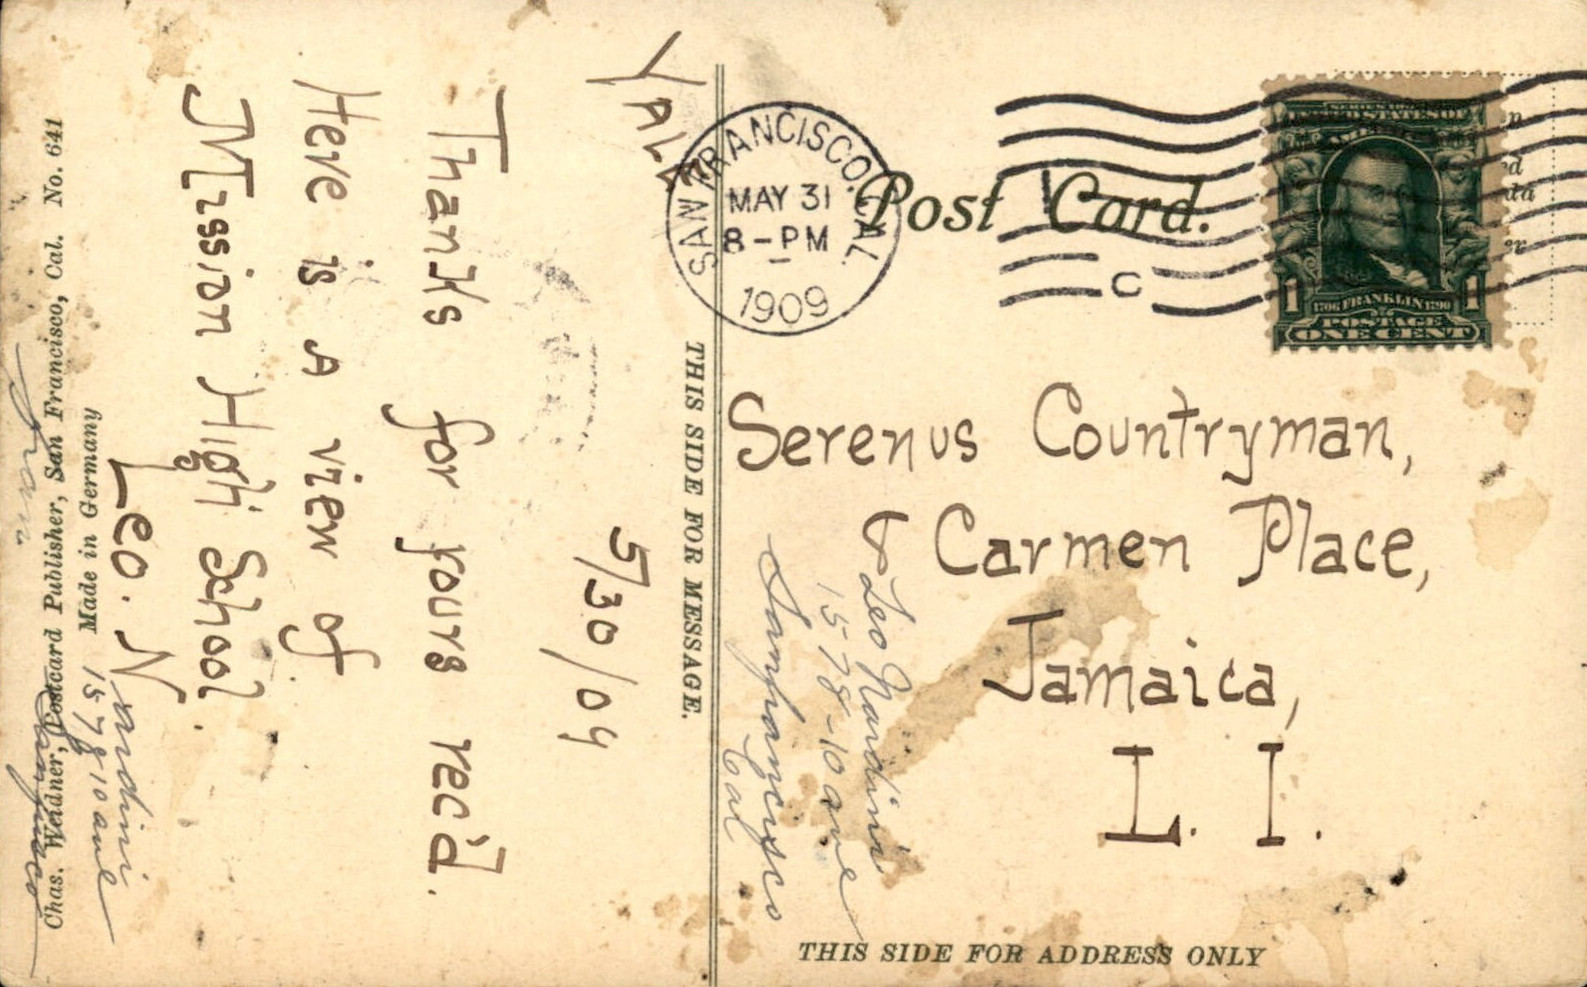 YALE
5/30/09
Thanks for yours rec'd.
Here is a view of
Mission High School.
Leo. N
ardini
1578 10 ave
Chas. Weidner, Postcard Publisher, San Francisco, Cal. No. 641
Made in Germany
THIS SIDE FOR MESSAGE.
SAN FRANCISCO, CAL.
MAY 31
8-PM
1909
C
Post Card.
SERIES 1902
UNITED STATES OF
AMERICA
1 1706 FRANKLIN 1790 1
POSTAGE
ONE CENT
Serenus Countryman,
Carmen Place,
Jamaica,
L. I.
Leo Nardini
1578-10 ave
Sanfrancisco
Cal
THIS SIDE FOR ADDRESS ONLY